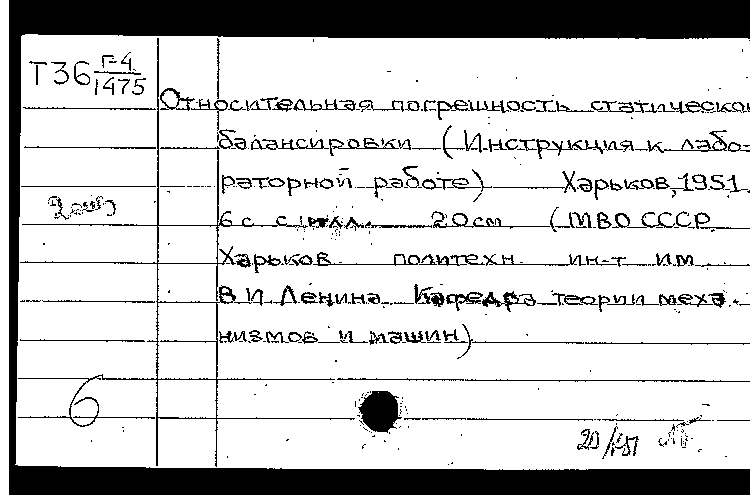 Т36 Г-4/1475
Относительная погрешность статическо
балансировки (Инструкция к лабо-
раторной работе) Харьков, 1951.
6 с. с 20 см. (МВО СССР.
Харьков. политехн. ин-т им.
В.И. Ленина. Кафедра теории меха-
низмов и машин)
6
20/